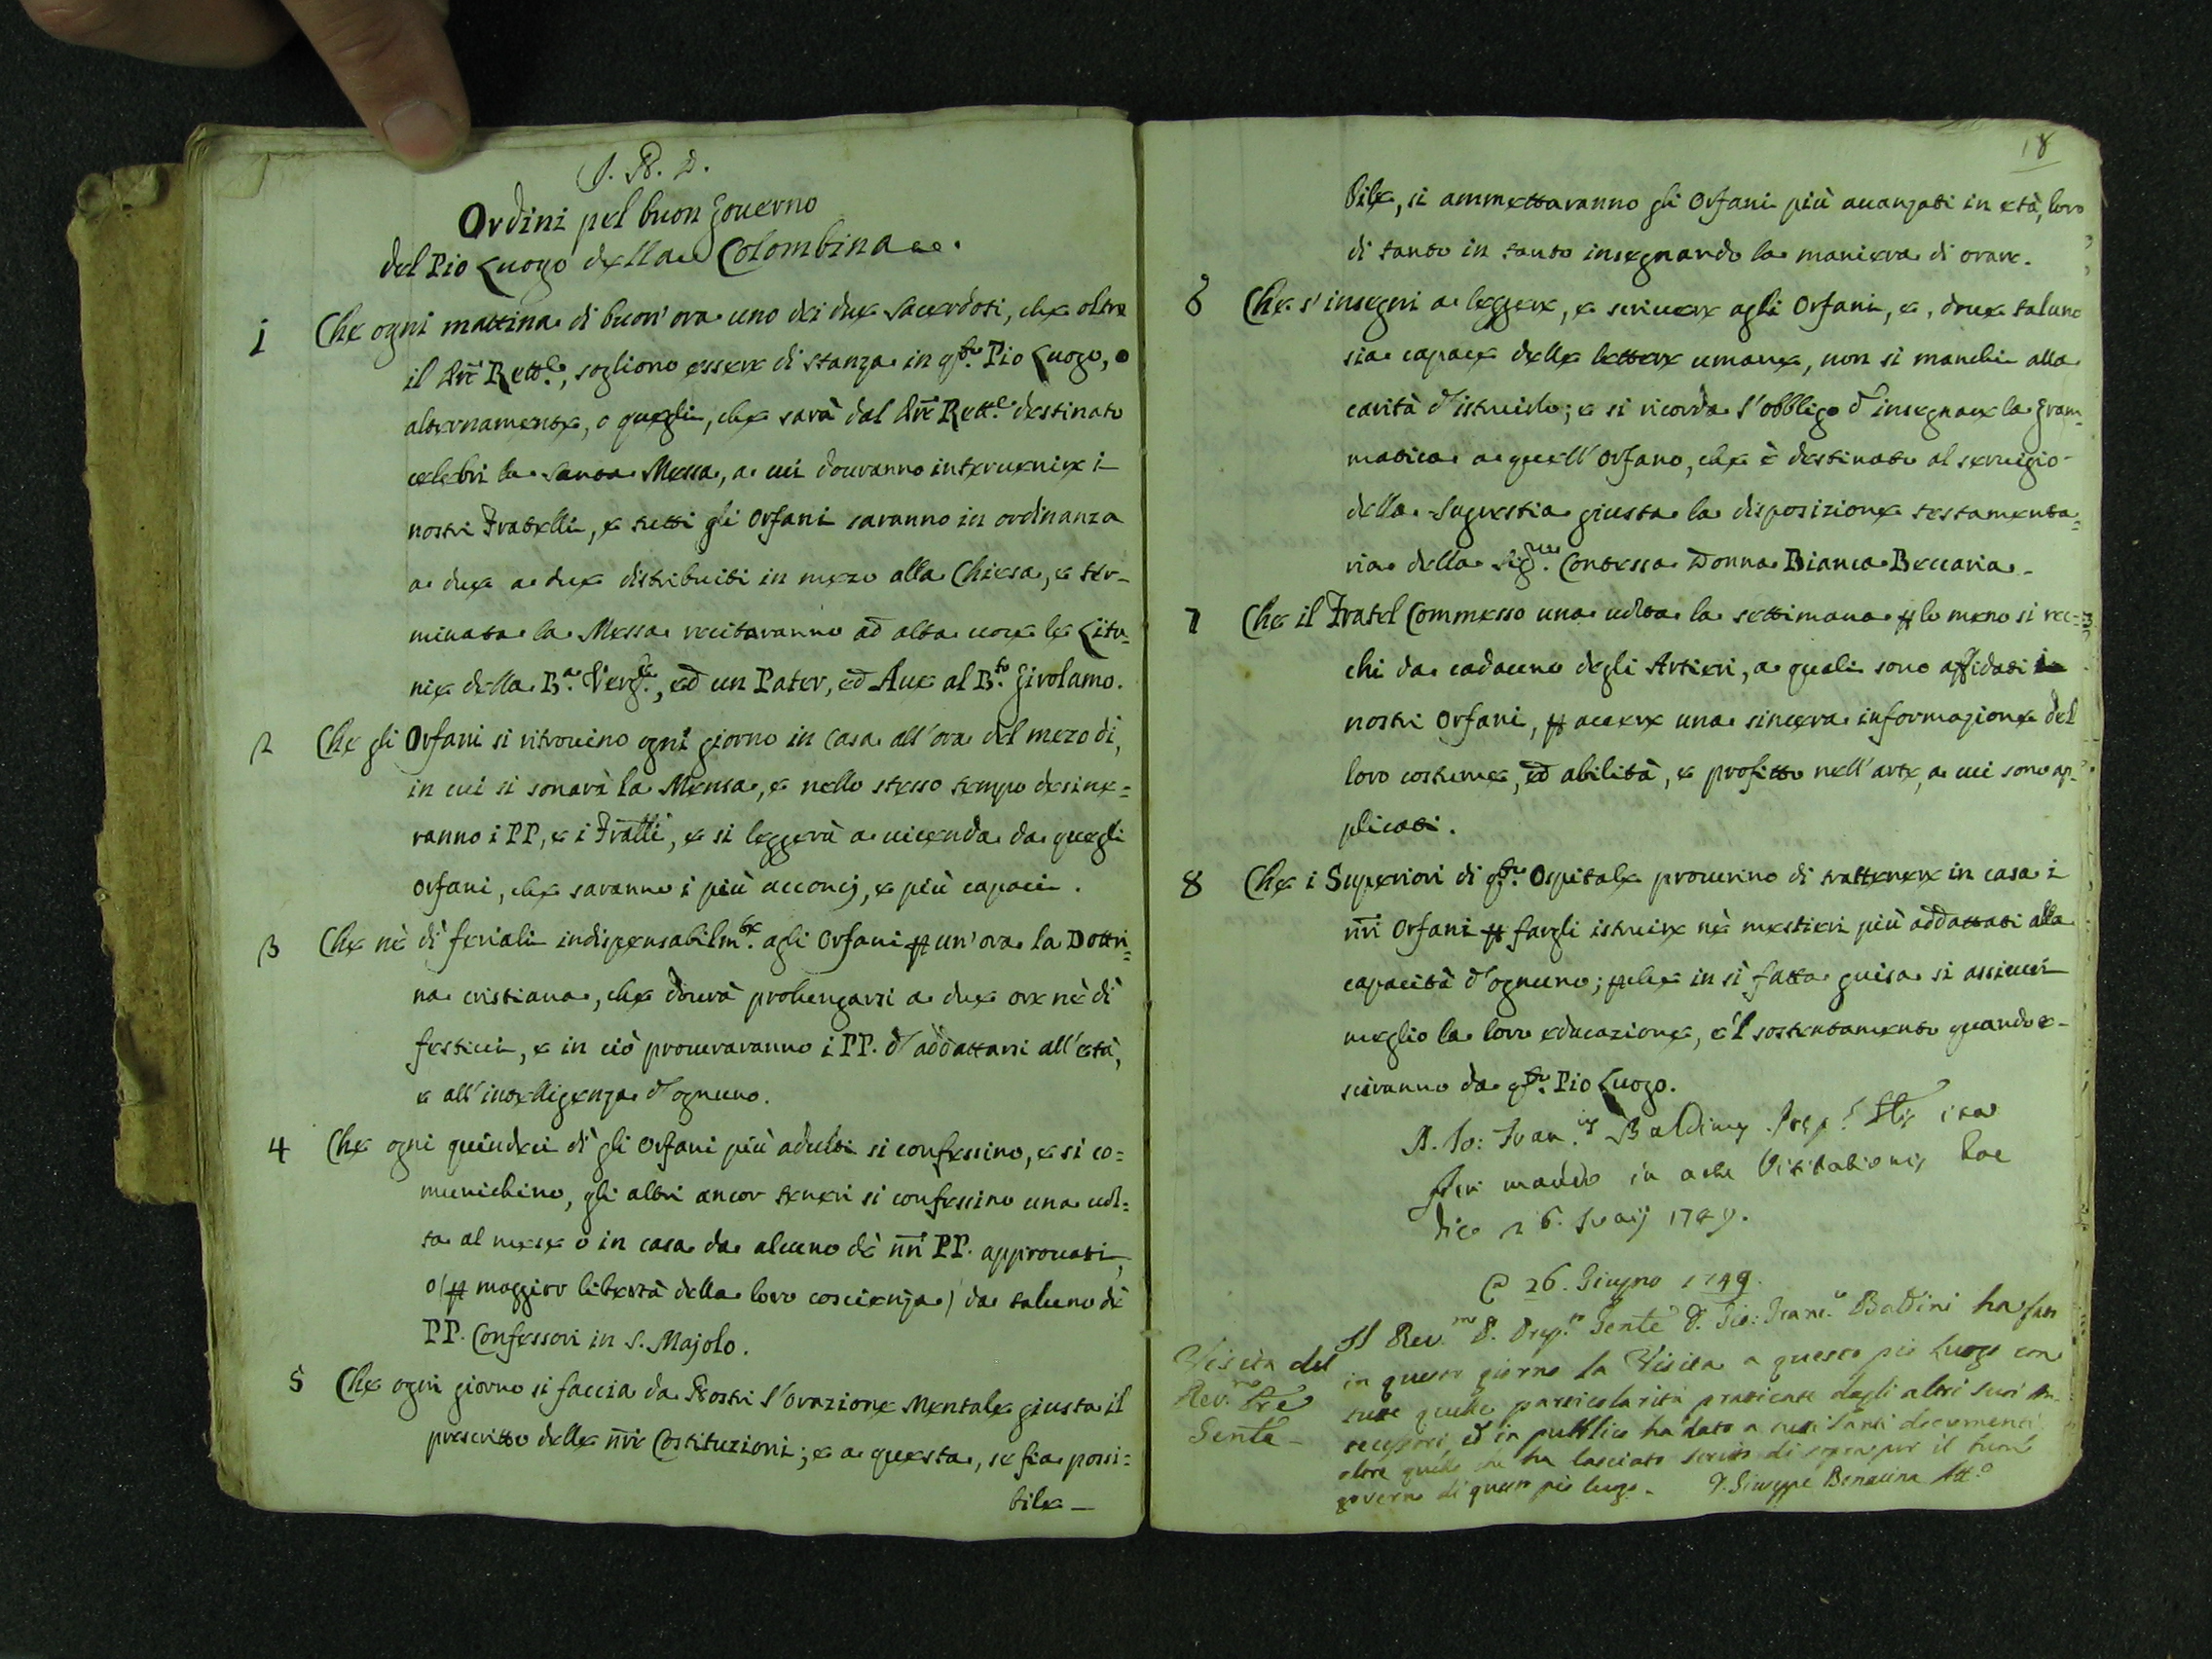 Ordini pel buon Governo
del Pio Luogo della Colombina.
1 Che ogni mattina di buon' ora uno dei due Sacerdoti, che oltre
il Rett.e, sogliono essere di stanza in q.sto Pio Luogo, o
alternamente, o quegli, che sarà dal Rett.e destinato
celebri la Santa Messa, a cui douranno interuenire i
nostri Fratelli, e tutti gli Orfani saranno in ordinanza
a due a due distribuiti in mezo alla Chiesa, e ter-
minata la Messa recitaranno ad alta uoce le Lita=
nie della B.a Verg.e, ed un Pater, ed Aue al B.to Girolamo.
2 Che gli Orfani si ritrouino ogni giorno in Casa all' ora del mezo di,
in cui si sonarà la Mensa, e nello stesso tempo desine=
ranno i PP, e i Fratlli, e si leggerà a uicenda da quegli
Orfani, che saranno i più acconcj, e più capaci.
3 Che nè dì feriali indispensabilm.te agli Orfani p un' ora la Dottri=
na cristiana, che dourà prolungarsi a due ore nè dì
festiui, e in ciò procuraranno i PP. d' addattarsi all' età,
e all' intelligenza d' ognuno.
4 Che ogni quindeci dì gli Orfani più adulti si confessino, e si co=
munichino, gli altri ancor teneri si confessino una uol=
ta al mese o in casa da alcuno dè nri PP. approuati,
o (p maggior libertà della loro coscienza) da taluno dè
PP. Confessori in S. Majolo.
5 Che ogni giorno si faccia da Nostri l'Orazione Mentale giusta il
prescritto delle nre Costituzioni; e a questa, se fia possi=
bile -
18
bile, si ammettaranno gli Orfani più auanzati in età, loro
di tanto in tanto insegnando la maniera di orare.
6 Che s' insegni a leggere, e scriuere agli Orfani, e, doue taluno
sia capace delle lettere umane, non si manchi alla
carità d' istruirlo; e si ricorda l' obbligo d' insegnare la Gram=
matica a quell' Orfano, che è destinato al seruigio
della Sagrestia giusta la disposizione testamenta=
ria della Sig.ra Contessa Donna Bianca Beccaria.
7 Che il Fratel Commesso una uolta la settimana p lo meno si rec=
chi da cadauno degli Artieri, a quali sono affidati i
nostri Orfani, p auere una sincera informazione del
loro costume, ed abilità, e profitto nell' arte, a cui sono ap=
plicati.
8 Che i Superiori di q.sto Ospitale procurino di trattenere in casa i
nri Orfani p fargli istruire nè mestieri più addattati alla
capacità d' ognuno; pche in sì fatta guisa si assicuri
meglio la loro educazione, e 'l sostentamento quando e-
sciranno da q.sto Pio Luogo.
Baldinus Prep. ita
fieri mando in actu Visitationis hac
die 26. Junij 1749.
26. Giugno 1749.
Visita del
Rev.mo Pre
Gen.le
Il Rev.mo P. Prep.to Gen.le D. Gio: Franc.o Baldini ha fatto
in questo giorno la Visita a questo pio Luogo con
tutte quelle particolarità praticate dagli altri suoi An=
tecessori, ed in pubblico ha dato a tutti santi documenti
oltre quello che ha lasciato scritto di sopra per il buon
governo di questo pio luogo. D. Giuseppe Att.o